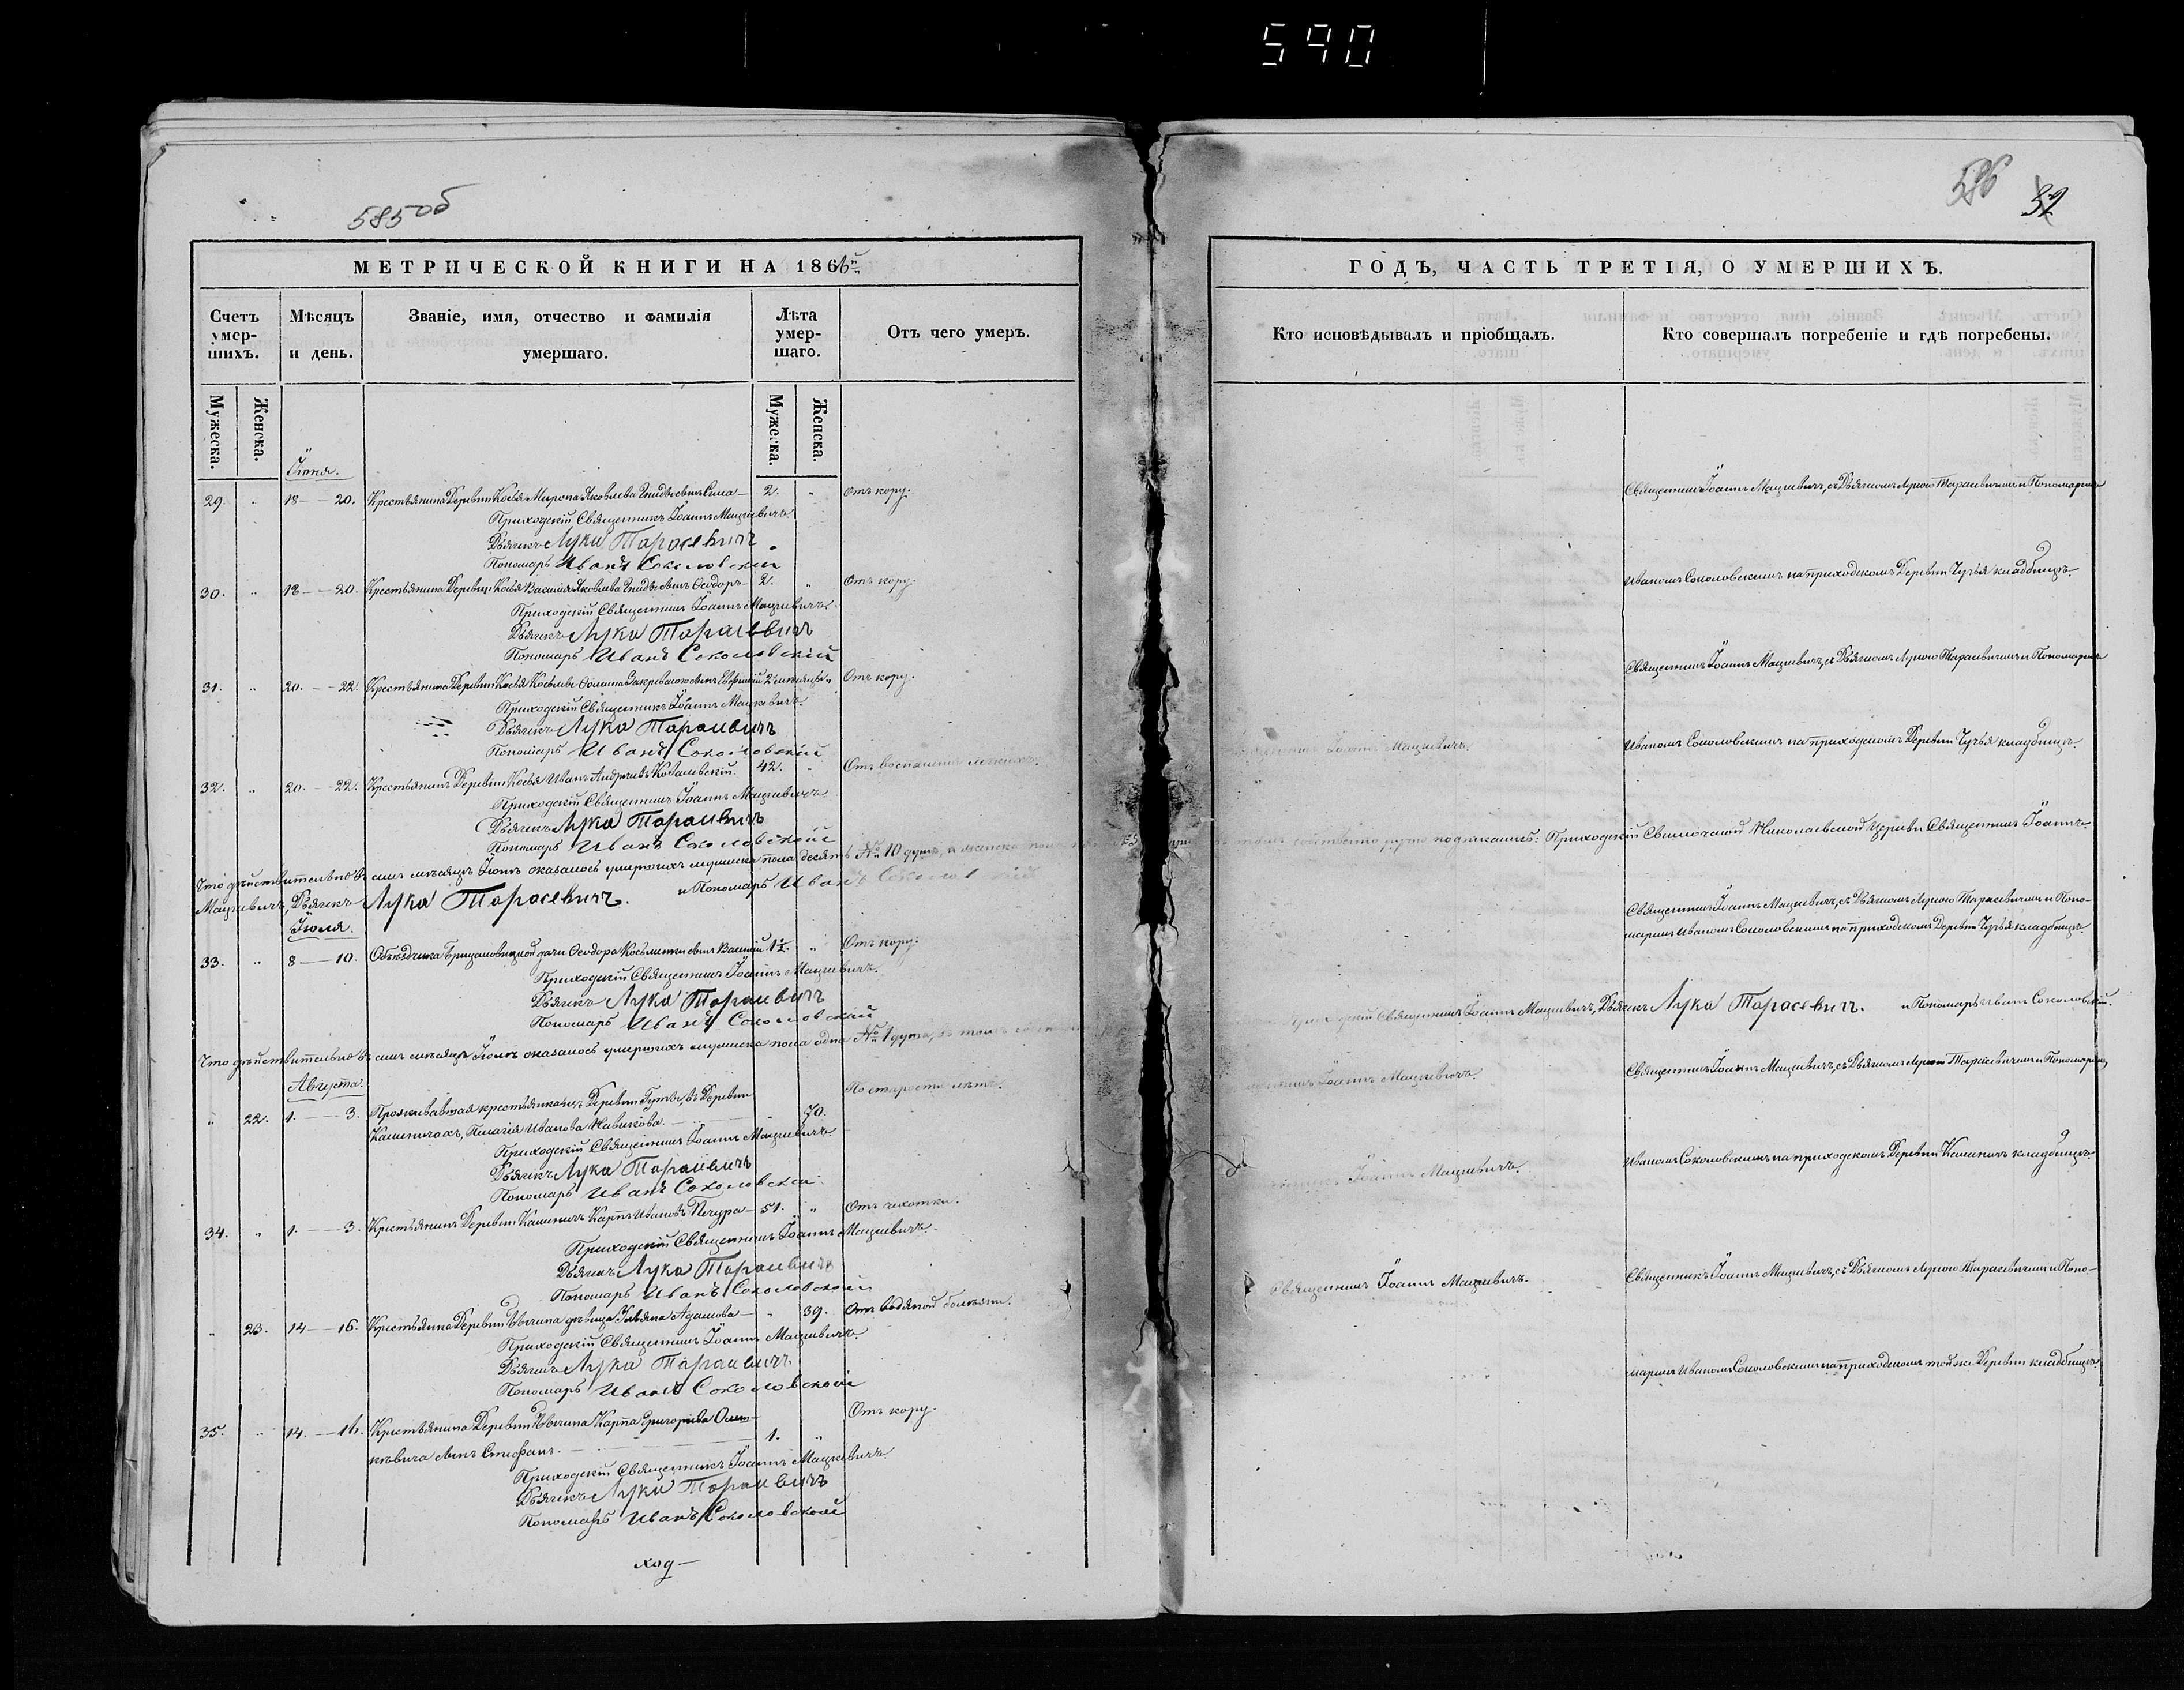 590
585 об
586 32
МЕТРИЧЕСКОЙ КНИГИ НА 1866й
Счетъ умершихъ.
Мѣсяцъ и день.
Званіе, имя, отчество и фамилія умершаго.
Лѣта умершаго.
Отъ чего умеръ.
Мужеска.
Женска.
Мужеска.
Женска.
Іюня.
29. „ 18 — 20. Крестьянина Деревни Мирона Яковлева сынъ Сила — 2. „ Отъ кору.
Приходскій Священникъ Іоаннъ Мацкевичъ.
Дьячекъ Лука Тарасевичъ
Пономарь Иванъ Соколовскій
30. „ 18 — 20. Крестьянина Деревни Василія Яковлева сынъ Ѳеодоръ — 2. „ Отъ кору.
Приходскій Священникъ Іоаннъ Мацкевичъ.
Дьячекъ Лука Тарасевичъ
Пономарь Иванъ Соколовскій
31. „ 20. — 22. Крестьянина Деревни сынъ 2 Отъ кору.
Приходскій Священникъ Іоаннъ Мацкевичъ.
Дьячекъ Лука Тарасевичъ
Пономарь Иванъ Соколовскій
32. „ 20. — 22. Крестьянинъ Деревни Иванъ Андреевъ 42. „ Отъ воспаленія легкихъ.
Приходскій Священникъ Іоаннъ Мацкевичъ.
Дьячекъ Лука Тарасевичъ
Пономарь Иванъ Соколовскій
Что дѣйствительно въ семъ мѣсяцѣ Іюнѣ оказалось умершихъ мужеска пола десять № 10 душъ, а женска
Мацкевичъ, Дьячекъ Лука Тарасевичъ. и Пономарь Иванъ Соколовскій
Іюля.
33. „ 8 — 10. Объѣздчика дачи Ѳеодора сынъ Василій 1½. „ Отъ кору.
Приходскій Священникъ Іоаннъ Мацкевичъ.
Дьячекъ Лука Тарасевичъ
Пономарь Иванъ Соколовскій
Что дѣйствительно въ семъ мѣсяцѣ Іюлѣ оказалось умершихъ мужеска пола одна № 1 душа, въ томъ
Августа.
„ 22. 1. — 3. Проживавшая крестьянка изъ Деревни Гуты, въ Деревни „ 70. По старости лѣтъ.
Каменичахъ, Пелагія Иванова Навикова. —
Приходскій Священникъ Іоаннъ Мацкевичъ
Дьячекъ Лука Тарасевичъ
Пономарь Иванъ Соколовскій
34. „ 1. — 3. Крестьянинъ Деревни Каменичъ Карпъ Ивановъ Печура — 51. „ Отъ чахотки.
Приходскій Священникъ Іоаннъ Мацкевичъ.
Дьячекъ Лука Тарасевичъ
Пономарь Иванъ Соколовскій
„ 23. 14 — 16. Крестьянка Деревни дѣвица Ульяна Адамова — „ 39. Отъ водяной болѣзни.
Приходскій Священникъ Іоаннъ Мацкевичъ.
Дьячекъ Лука Тарасевичъ
Пономарь Иванъ Соколовскій
35. „ 14. — 16. Крестьянина Деревни Карпа Григорьева 1. „ Отъ кору.
сынъ Стефанъ. —
Приходскій Священникъ Іоаннъ Мацкевичъ.
Дьячекъ Лука Тарасевичъ
Пономарь Иванъ Соколовскій
ход—
ГОДЪ, ЧАСТЬ ТРЕТІЯ, О УМЕРШИХЪ.
Кто исповѣдывалъ и пріобщалъ.
Кто совершалъ погребеніе и гдѣ погребены.
Священникъ Іоаннъ Мацкевичъ, съ Дьячкомъ Лукою Тарасевичемъ и Пономаремъ
Иваномъ Соколовскимъ на приходскомъ Деревни кладбищѣ.
Священникъ Іоаннъ Мацкевичъ, съ Дьячкомъ Лукою Тарасевичемъ и Пономаремъ
Іоаннъ Мацкевичъ. Иваномъ Соколовскимъ на приходскомъ Деревни кладбищѣ.
собственно ручно подписаніемъ: Приходскій Николаевской Церкви Священникъ Іоаннъ
Священникъ Іоаннъ Мацкевичъ, съ Дьячкомъ Лукою Тарасевичемъ и Поно-
маремъ Иваномъ Соколовскимъ на приходскомъ Деревни кладбищѣ.
Приходскій Священникъ Іоаннъ Мацкевичъ, Дьячекъ Лука Тарасевичъ. и Пономарь Иванъ Соколовскій.
Іоаннъ Мацкевичъ. Священникъ Іоаннъ Мацкевичъ, съ Дьячкомъ Лукою Тарасевичемъ и Пономаремъ
Іоаннъ Мацкевичъ. Иваномъ Соколовскимъ на приходскомъ Деревни Каменичъ кладбищѣ.
Священникъ Іоаннъ Мацкевичъ. Священникъ Іоаннъ Мацкевичъ, съ Дьячкомъ Лукою Тарасевичемъ и Поно-
маремъ Иваномъ Соколовскимъ на приходскомъ той же Деревни кладбищѣ.